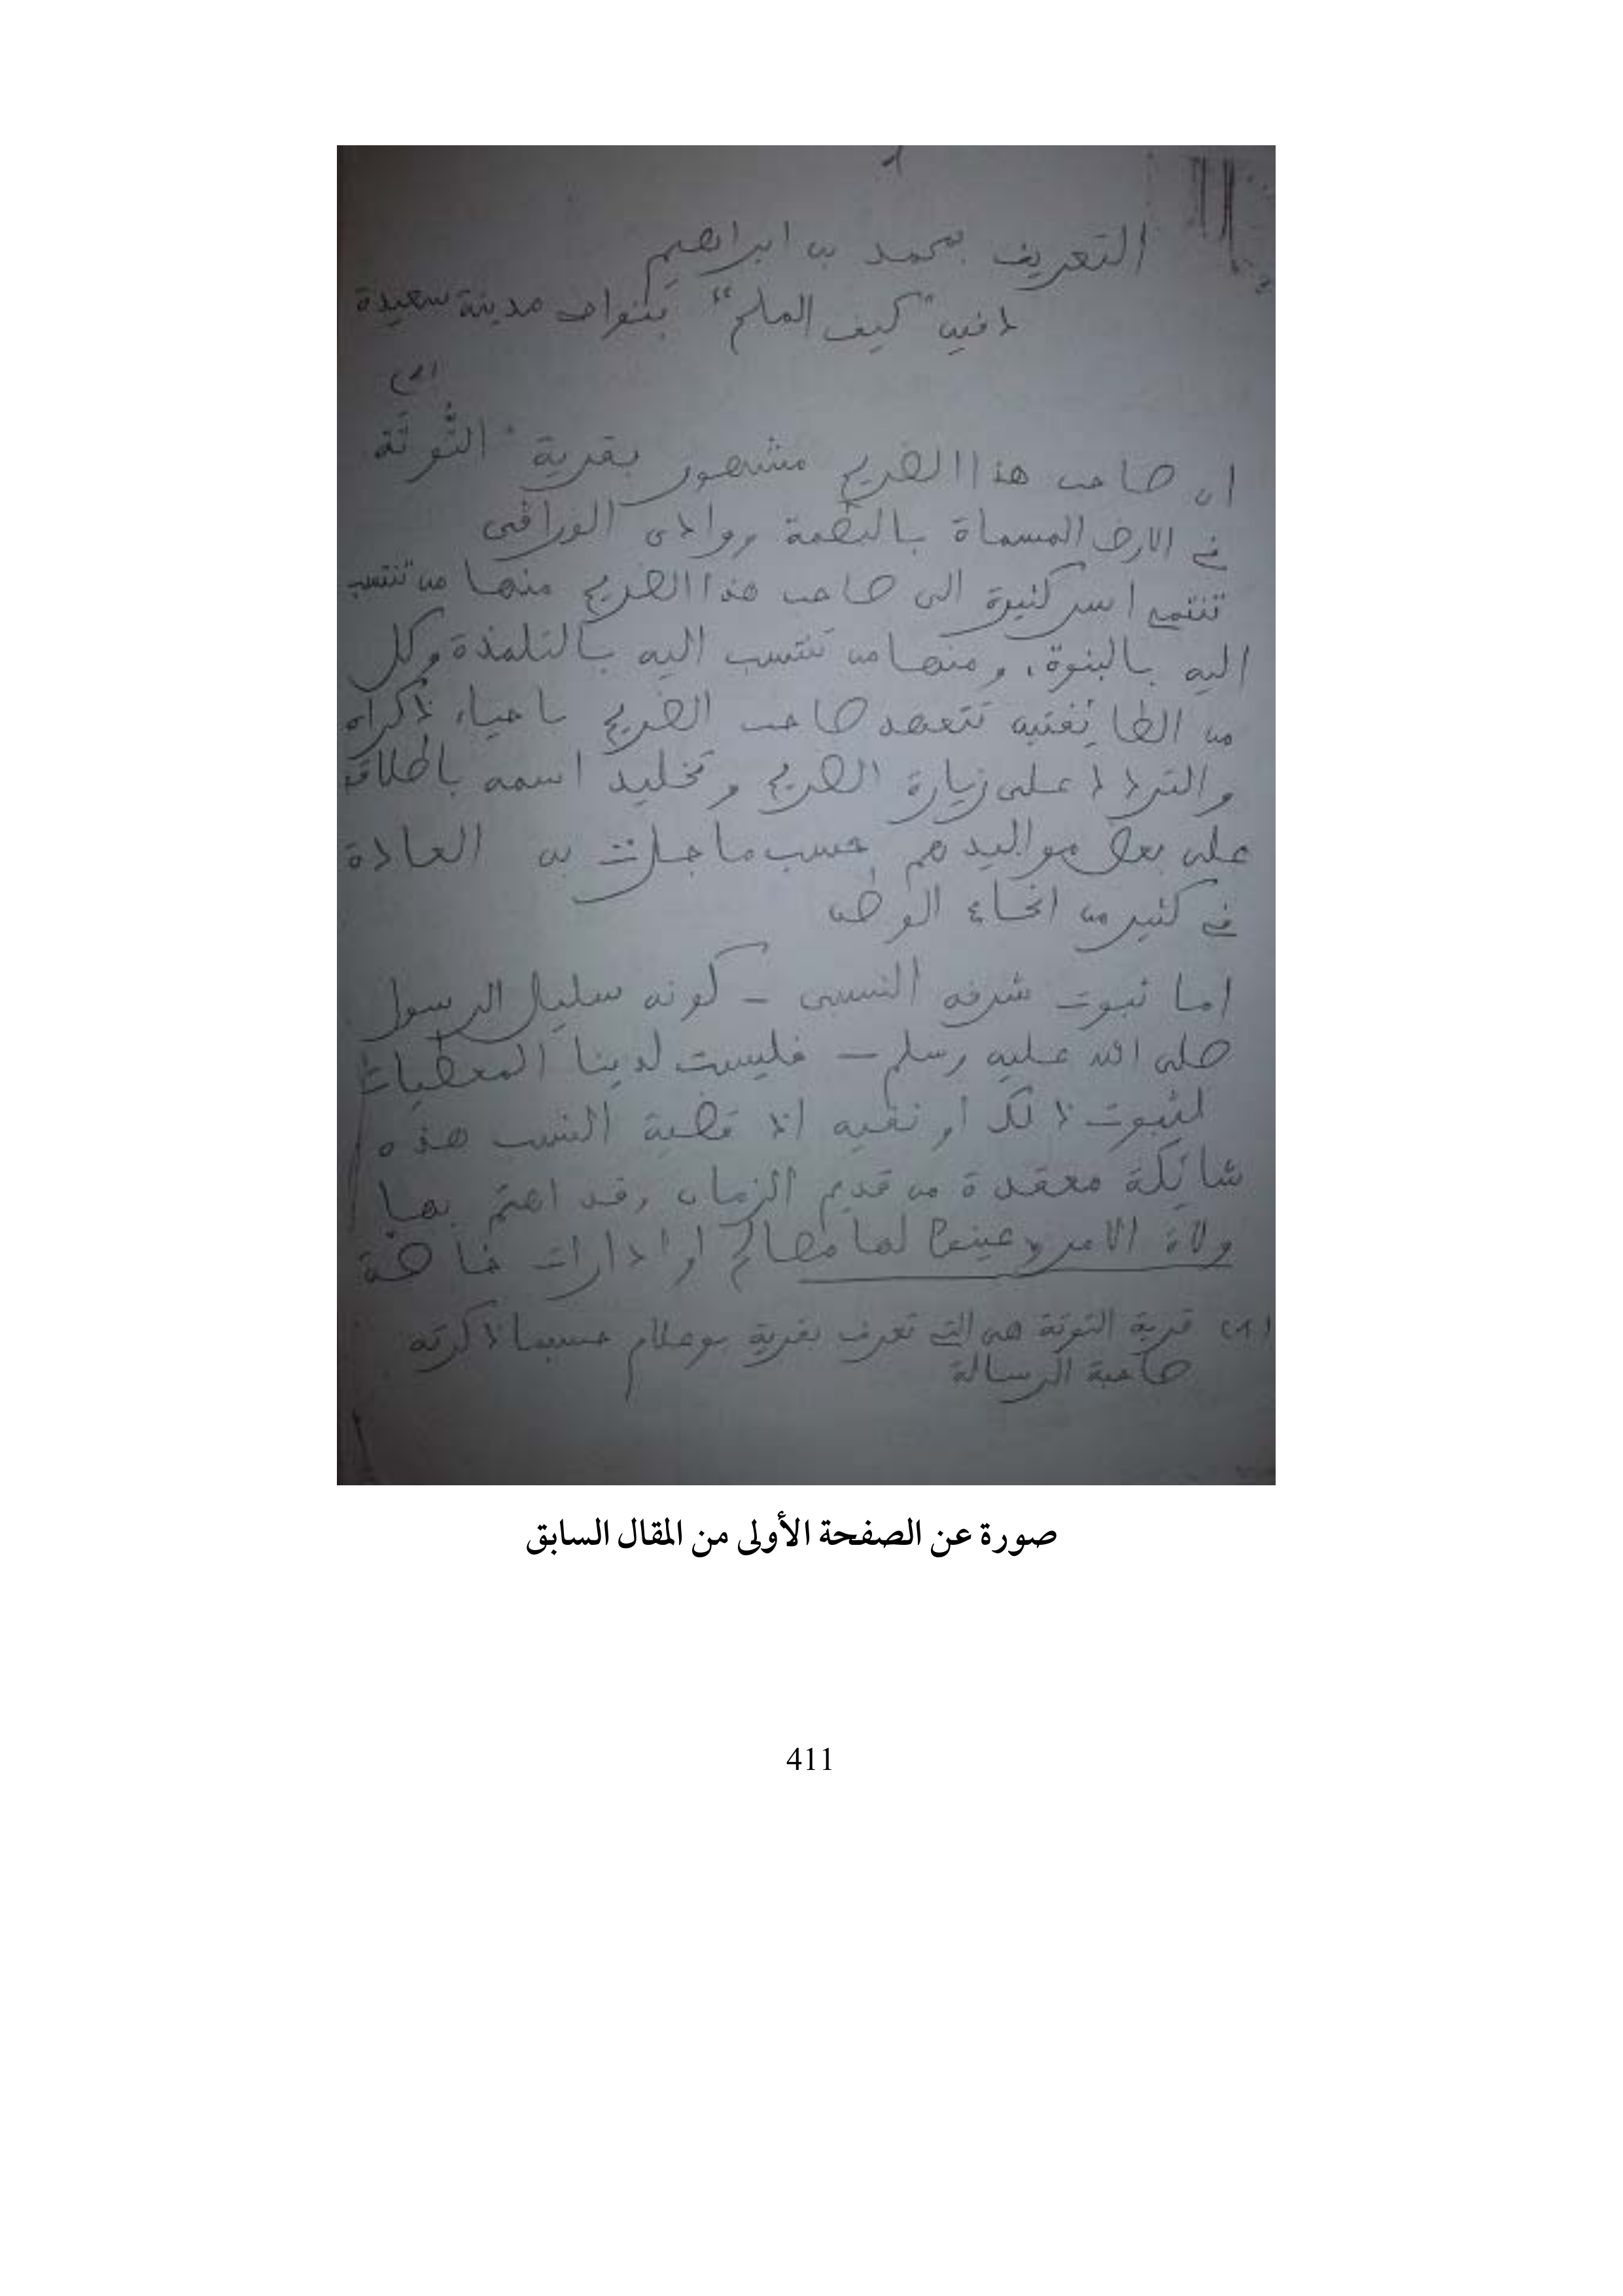 1
التعريف بمحمد بن ابراهيم
دفين "كيف الملح" بنواحي مدينة سعيدة
(1)
ان صاحب هذا الضريح مشهور بقرية التُّوتَة
في الارض المسماة بالنظمة ووادي
تنتمي اسر كثيرة الى صاحب هذا الضريح منها من تنتسب
اليه بالبنوة، ومنها من تنتسب اليه بالتلمذة وكل
من الطائفتين تتعهد صاحب الضريح باحياء ذكراه
والترداد على زيارة الضريح وتخليد اسمه باطلاقه
على بعض مواليدهم حسب ما به العادة
في كثير من انحاء الوطن
اما ثبوت شرفه النسبى - كونه سليل الرسول
صلى الله عليه وسلم - فليست لدينا المعطيات
لثبوت ذلك او نفيه اذ قضية النسب هذه
شائكة معقدة من قديم الزمان وقد اهتم بها
ولاة الامر وعينوا لها مصالح او ادارات خاصة
(1) قرية التوتة هي التي تعرف بقرية بوعلام حسبما ذكرته
صاحبة الرسالة
صورة عن الصفحة الأولى من المقال السابق
411